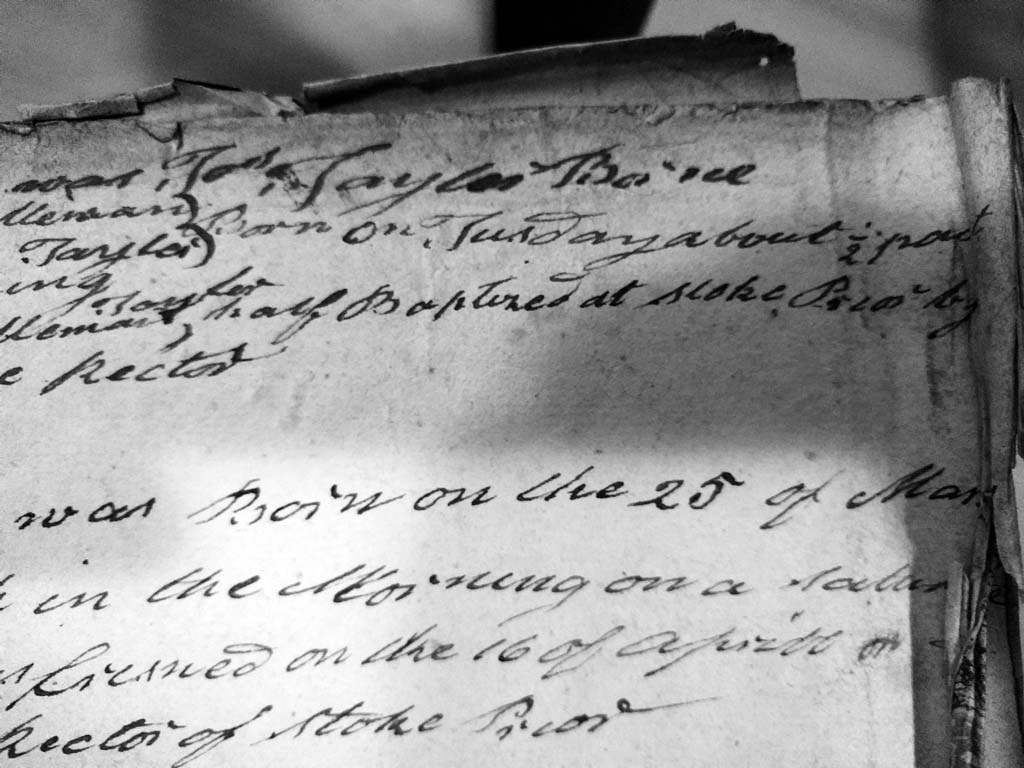 was Jos Taylor Boine
tleman) Born on Tusday about ½ past
Taylor)
ing
Taylor
tleman, half Baptized at Stoke Prior by
e Rector
was Born on the 25 of Mar
in the Morning on a Satur
firsned on the 16 of Aprill on
Rector of Stoke Prior